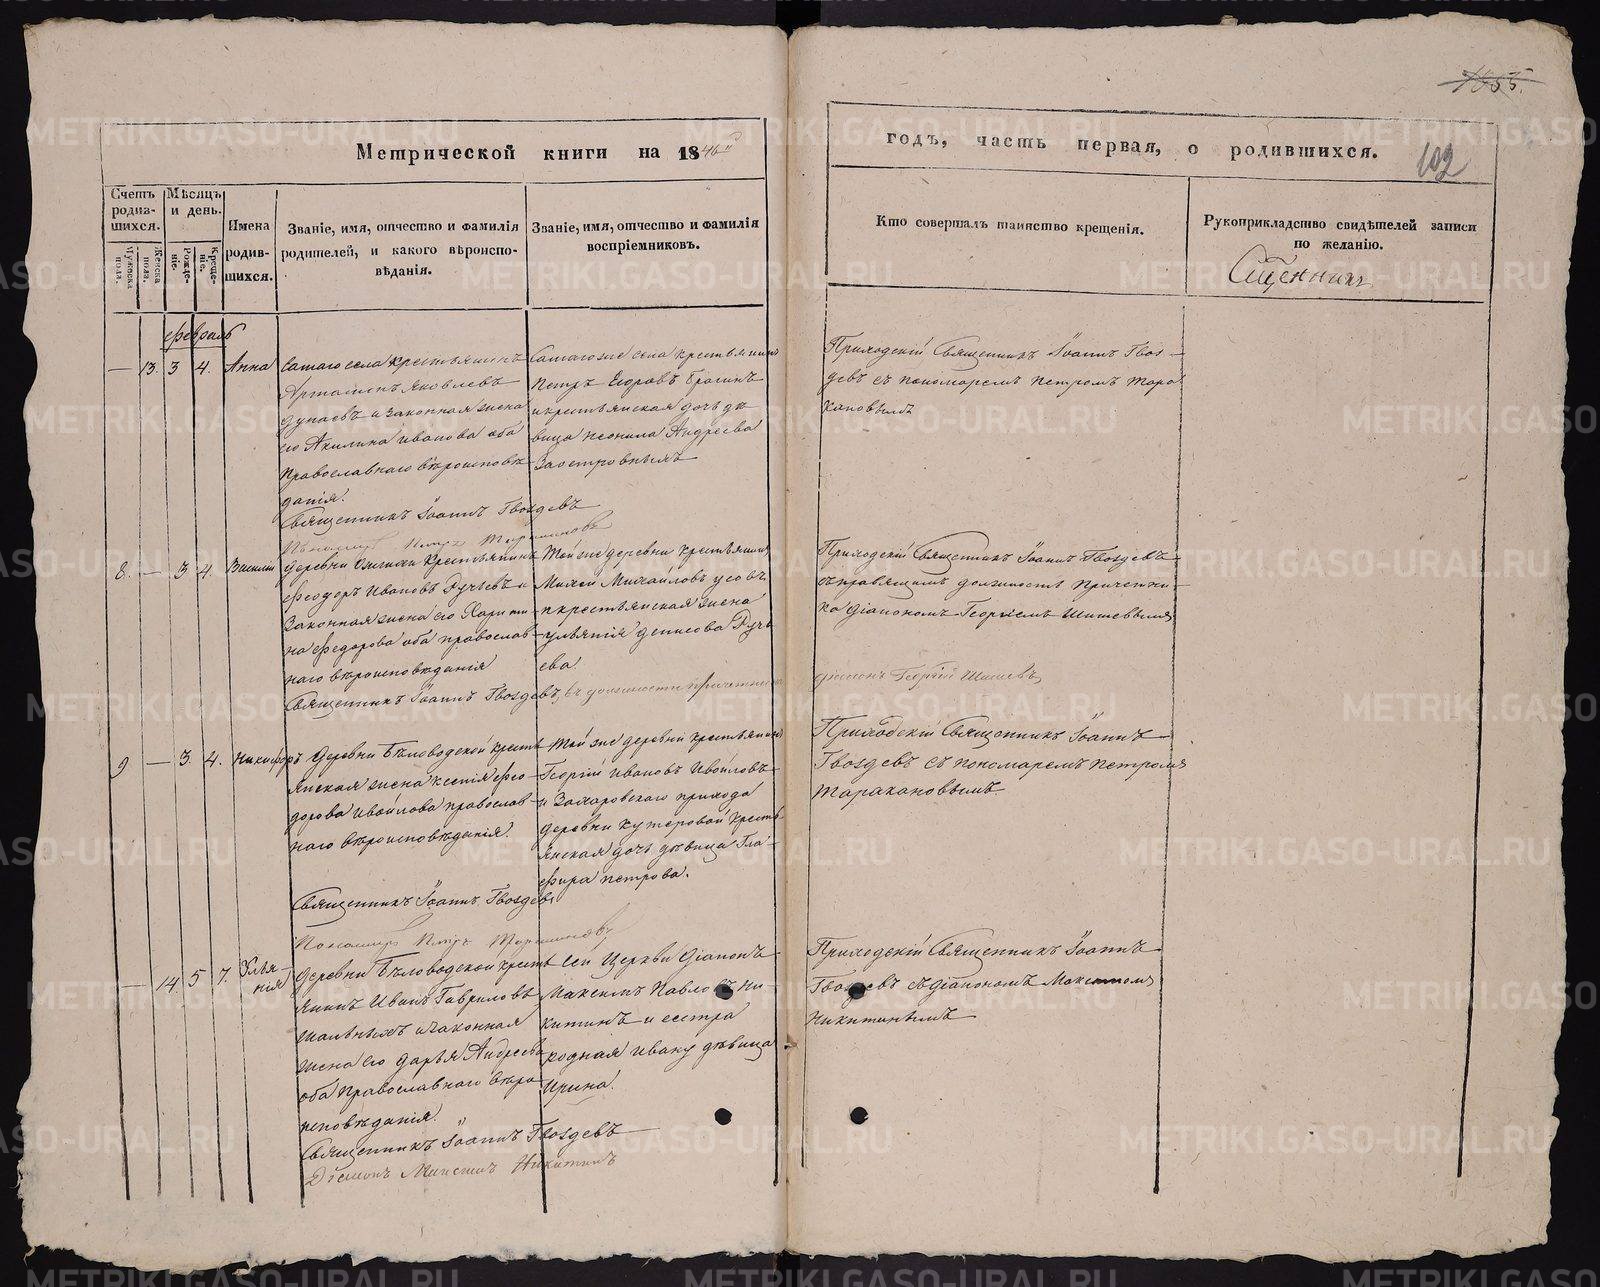 1055.
Метрической книги на 1846й
годъ, часть первая, о родившихся.
102
Счетъ родив-шихся.
Мужеска пола.
Женска пола.
Мѣсяцъ и день.
Рожде-ніе.
Креще-ніе.
Имена родив-шихся.
Званіе, имя, отчество и фамилія
родителей, и какого вѣроиспо-
вѣданія.
Званіе, имя, отчество и фамилія
воспріемниковъ.
Кто совершалъ таинство крещенія.
Рукоприкладство свидѣтелей записи
по желанію.
Февраль
— 13. 3 4. Анна
Самаго села крестьянинъ
Артамонъ Яковлевъ
Дунаевъ и законная жена
его Акилина Иванова оба
Православнаго вѣроисповѣ-
данія.
Священникъ Іоаннъ Гвоздевъ
Самаго же села крестьянинъ
Петръ Егоровъ Брагинъ
и крестьянская дочь дѣ-
вица Неонила Андреева
Заостровныхъ
Приходскій Священникъ Іоаннъ Гвоз-
девъ съ пономаремъ Петромъ Тара-
кановымъ
8. — 3 4. Василій
Крестьянинъ
Феодоръ Ивановъ Ручьевъ и
Законная жена его Харити-
на Федорова оба православ-
наго вѣроисповѣданія
Священникъ Іоаннъ Гвоздевъ, въ должности причетника
Той же деревни крестьянинъ
Михайловъ Усовъ
и крестьянская жена
Ульянія Денисова Ручь-
ева.
Приходскій Священникъ Іоаннъ Гвоздевъ
съ правящимъ должность причетни-
ка діакономъ Георгіемъ Шишевымъ
діаконъ Георгій Шишевъ
9 — 3 4. Никифоръ
Деревни Бѣловодской кресть-
янская жена Ксенія Фео-
дорова Ивойлова православ-
наго вѣроисповѣданія.
Священникъ Іоаннъ Гвоздевъ
Пономарь Петръ Таракановъ
Той же деревни крестьянинъ
Георгій Ивановъ Ивойловъ
и прихода
деревни кресть-
янская дочь дѣвица Гла-
фира Петрова.
Приходскій Священникъ Іоаннъ
Гвоздевъ съ пономаремъ Петромъ
Таракановымъ
— 14 5 7. Улья-
нія
Деревни Бѣловодской кресть-
янинъ Иванъ Гавриловъ
и законная
жена его Дарья Андреева
оба Православнаго вѣро-
исповѣданія.
Священникъ Іоаннъ Гвоздевъ
Діаконъ Максимъ Никитинъ
Сей Церкви Діаконъ
Максимъ Павловъ Ни-
китинъ и сестра
родная Ивану дѣвица
Ирина.
Приходскій Священникъ Іоаннъ
Гвоздевъ съ діакономъ Максимомъ
Никитинымъ
METRIKI.GASO-URAL.RU